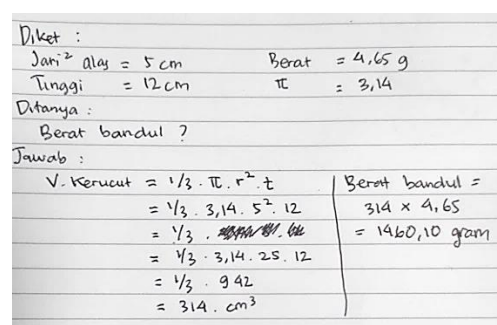 Diket :
Jari² alas = 5 cm
Tinggi = 12 cm
Berat = 4,65 g
π = 3,14
Ditanya :
Berat bandul ?
Jawab :
V. Kerucut = 1/3 . π . r² . t
= 1/3 . 3,14 . 5² . 12
= 1/3 .
= 1/3 . 3,14 . 25 . 12
= 1/3 . 942
= 314 . cm³
Berat bandul =
314 × 4,65
= 1460,10 gram